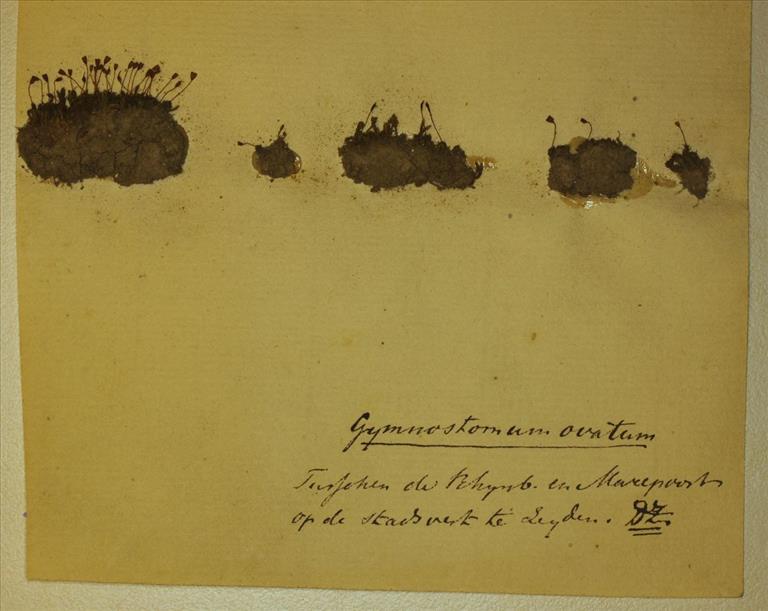 Gymnostomum ovatum
Tusschen de Rhynb. en Marepoort
op de stadsvest te Leyden. DZ.